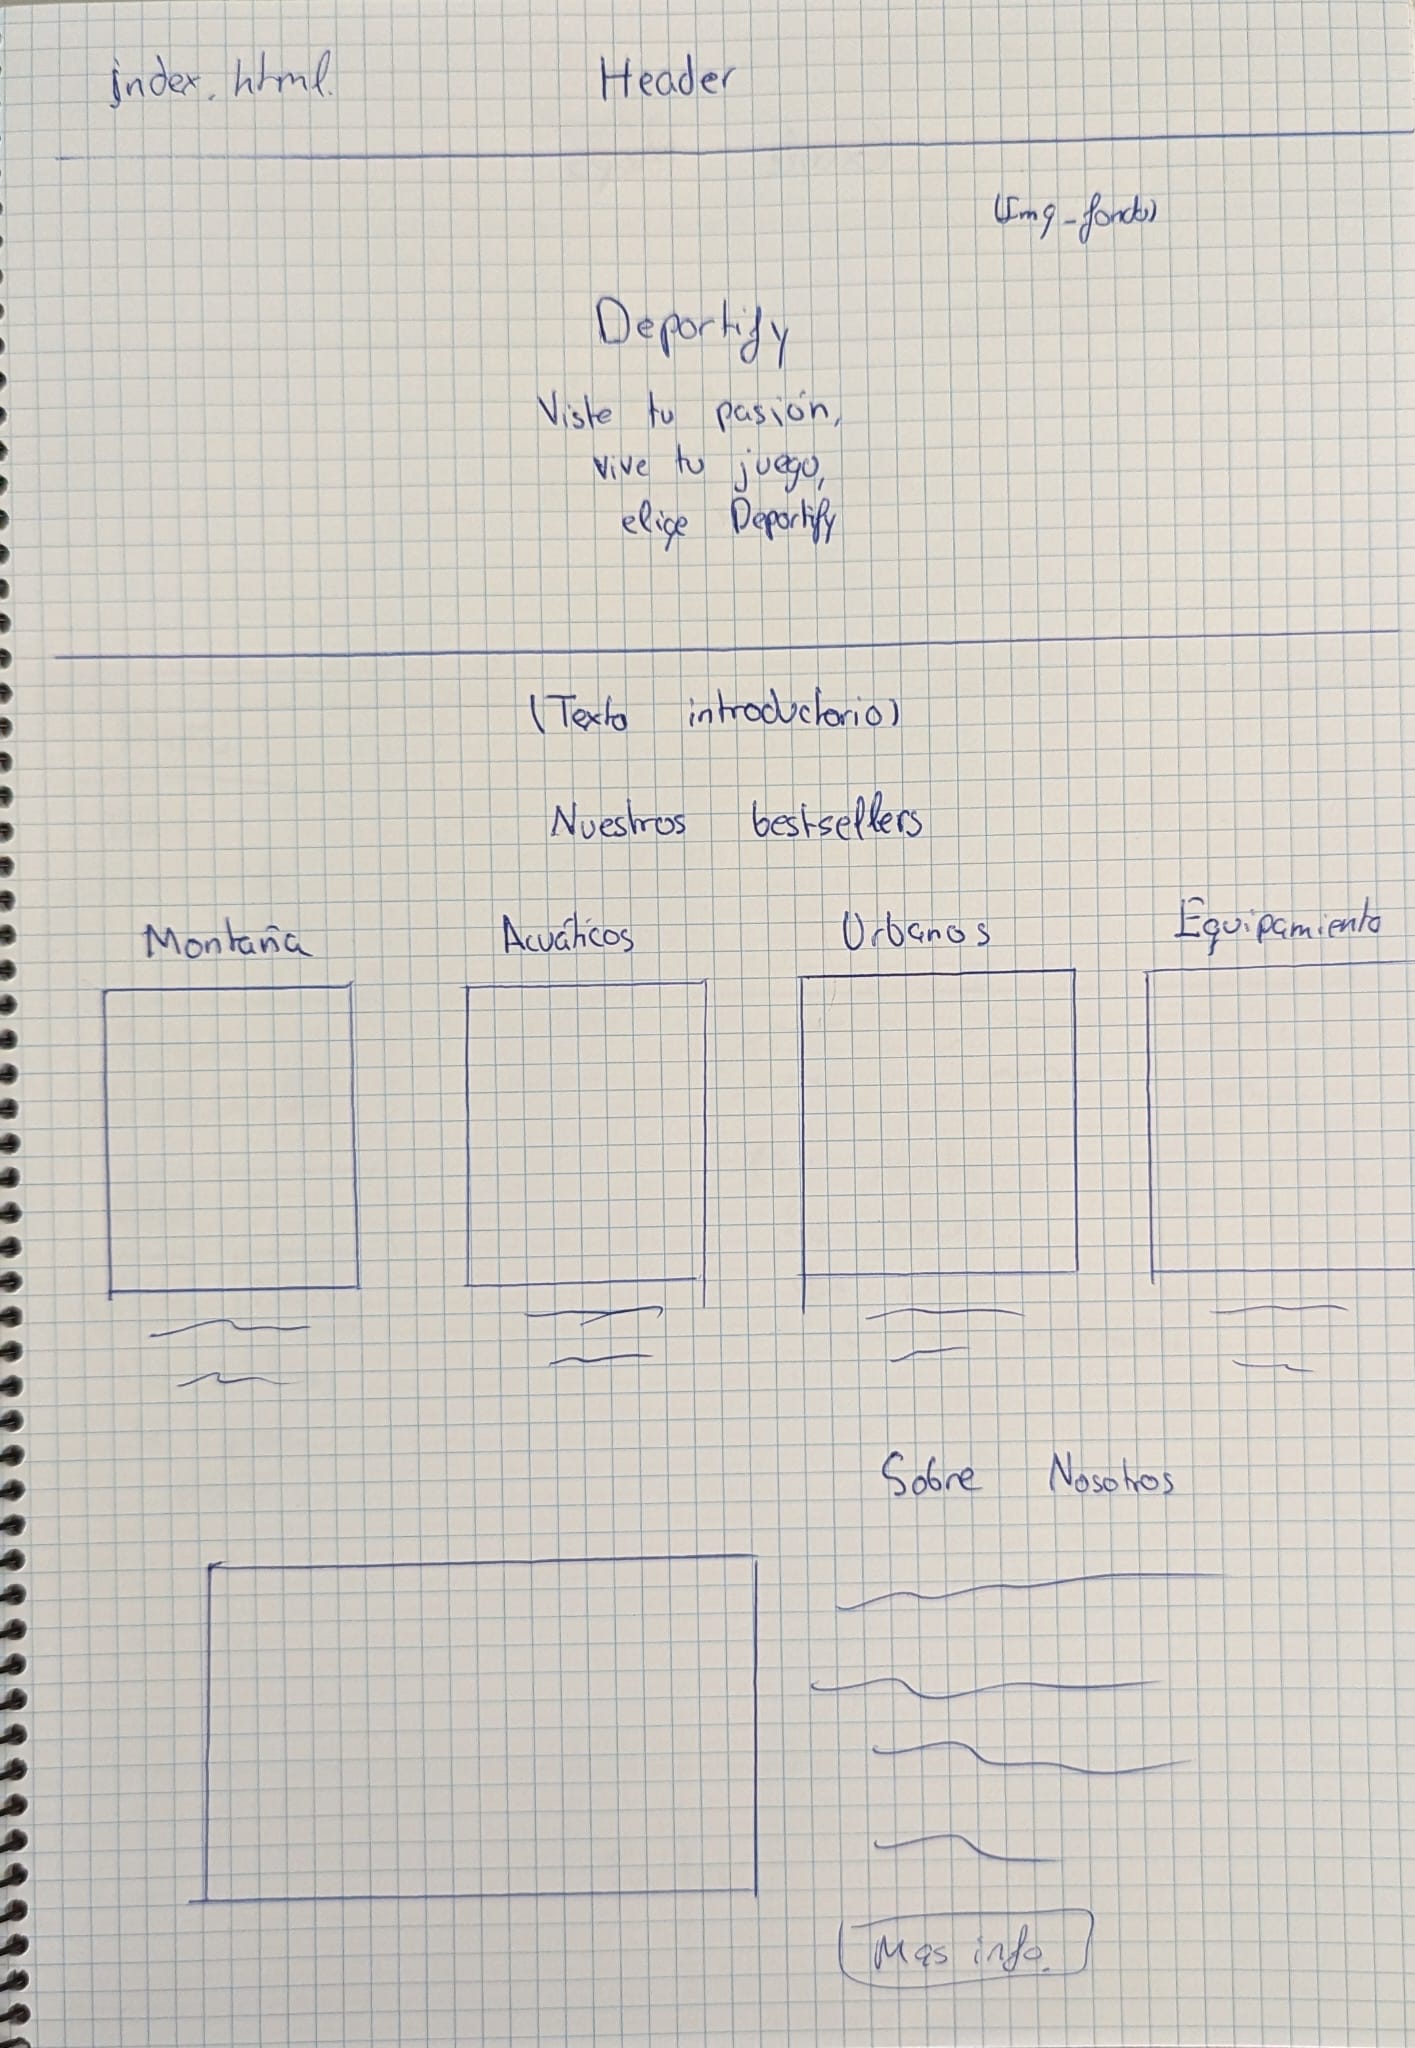 index.html.
Header
(Img-fondo)
Deportify
Viste tu pasión,
vive tu juego,
elige Deportify
(Texto introductorio)
Nuestros bestsellers
Montaña Acuáticos Urbanos Equipamiento
Sobre Nosotros
Mas info.